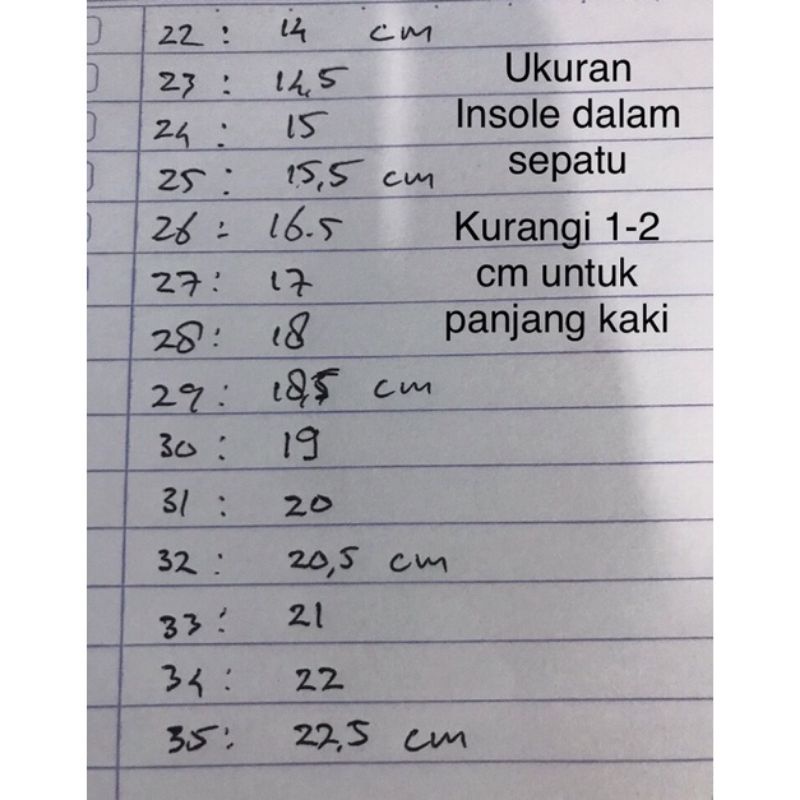 22 : 14 cm
23 : 14,5
24 : 15
25 : 15,5 cm
26 : 16.5
27 : 17
28 : 18
29 : 18,5 cm
30 : 19
31 : 20
32 : 20,5 cm
33 : 21
34 : 22
35 : 22,5 cm
Ukuran
Insole dalam
sepatu
Kurangi 1-2
cm untuk
panjang kaki